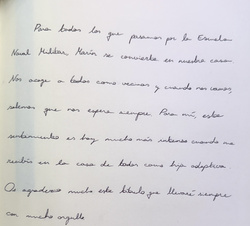 Para todos los que pasamos por la Escuela
Naval Militar, Marín se convierte en nuestra casa.
Nos acoge a todos como vecinos y cuando nos vamos,
sabemos que nos espera siempre. Para mí, este
sentimiento es hoy mucho más intenso cuando me
recibís en la casa de todos como hija adoptiva.
Os agradezco mucho este título que llevaré siempre
con mucho orgullo